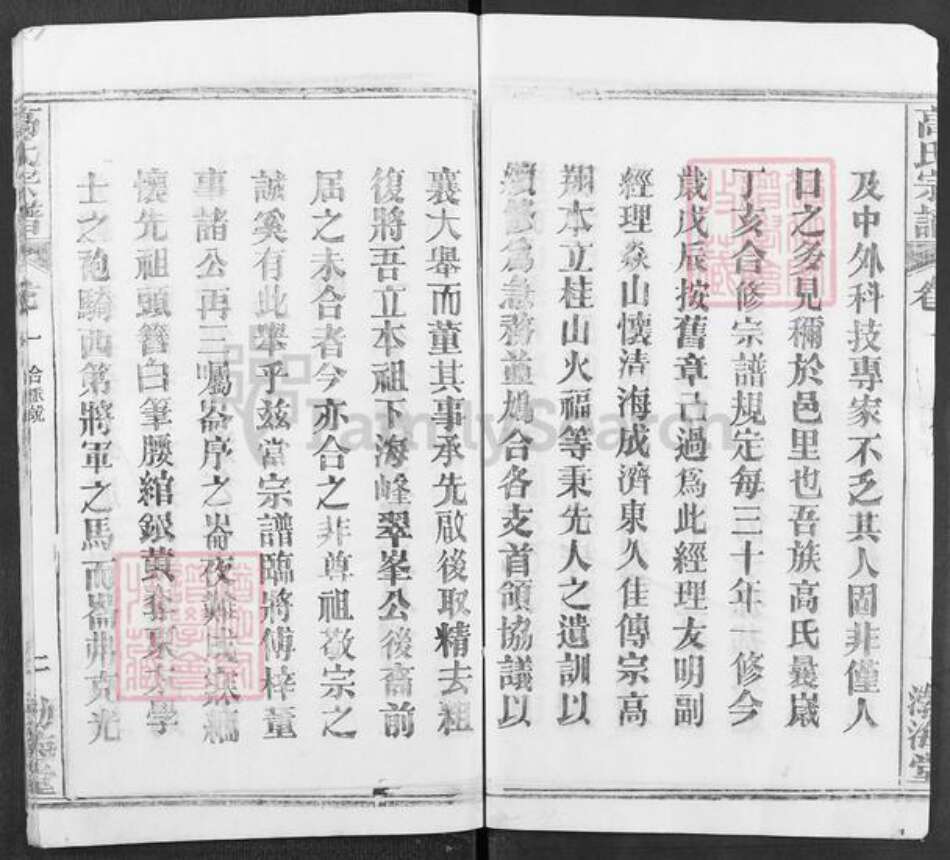 高氏宗譜
卷
渤海堂
及中外科技專家不乏其人固非僅人
日之多見稱於邑里也吾族高氏曩歲
丁亥合修宗譜規定每三十年一修今
歲戊辰按舊章已過爲此經理友明副
經理焱山懷清海成濟東久佳傳宗高
翔本立桂山火福等秉先人之遺訓以
續修爲急務並鳩合各支首領協議以
襄大舉而董其事承先啟後取精去粗
復將吾立本祖下海峰翠峯公後裔前
屆之未合者今亦合之非尊祖敬宗之
誠奚有此舉乎茲當宗譜臨將傅梓董
事諸公再三囑崙序之崙夜難成寐緬
懷先祖頭簪白筆腰綰銀黃奎聚太學
士之袍騎西第將軍之馬而崙弗克光
高氏宗譜
二
渤海堂
FamilySearch